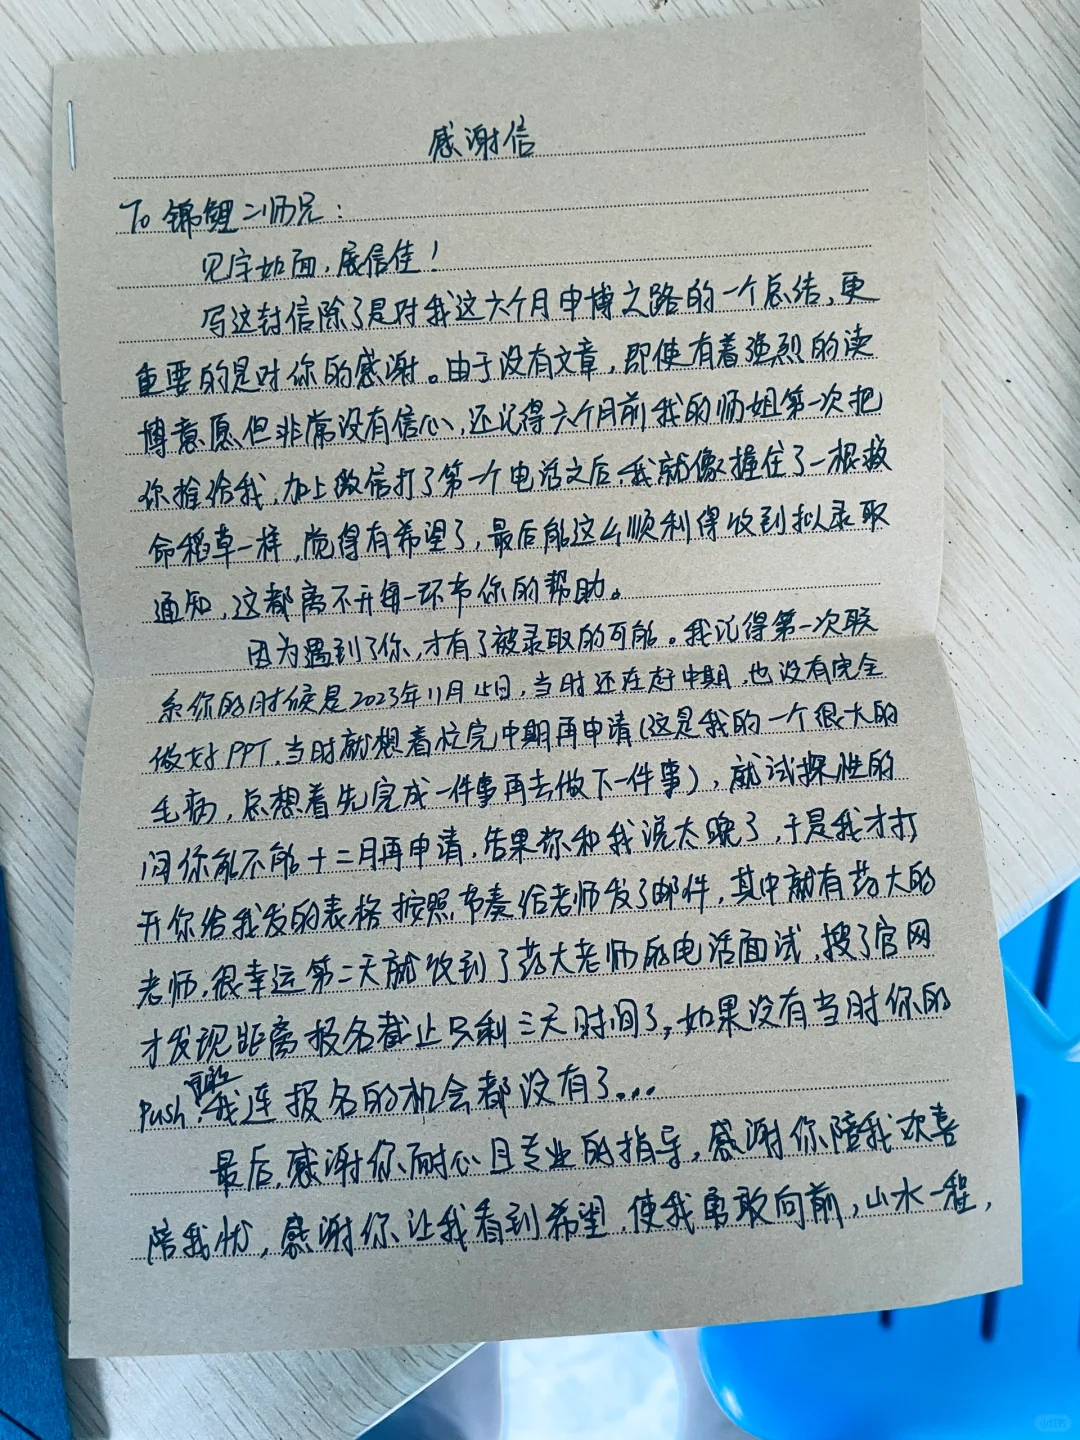 感谢信
To 锦鲤二师兄:
见字如面,展信佳!
写这封信除了是对我这六个月申博之路的一个总结,更
重要的是对你的感谢。由于没有文章,即使有着强烈的读
博意愿但非常没有信心,还记得六个月前我的师姐第一次把
你推给我,加上微信打了第一个电话之后,我就像握住了一根救
命稻草一样,觉得有希望了,最后能这么顺利得收到拟录取
通知,这都离不开每一环节你的帮助。
因为遇到了你,才有了被录取的可能。我记得第一次联
系你的时候是2023年11月15日,当时还在赶中期,也没有完全
做好PPT,当时就想着忙完中期再申请(这是我的一个很大的
毛病,总想着先完成一件事再去做下一件事),就试探性的
问你能不能十二月再申请,结果你和我说太晚了,于是我才打
开你给我发的表格按照节奏给老师发了邮件,其中就有药大的
老师,很幸运第二天就收到了药大老师的电话面试,搜了官网
才发现距离报名截止只剩三天时间了,如果没有当时你的
push,我连报名的机会都没有了...
最后,感谢你耐心且专业的指导,感谢你陪我欢喜
陪我忧,感谢你让我看到希望,使我勇敢向前,山水一程,